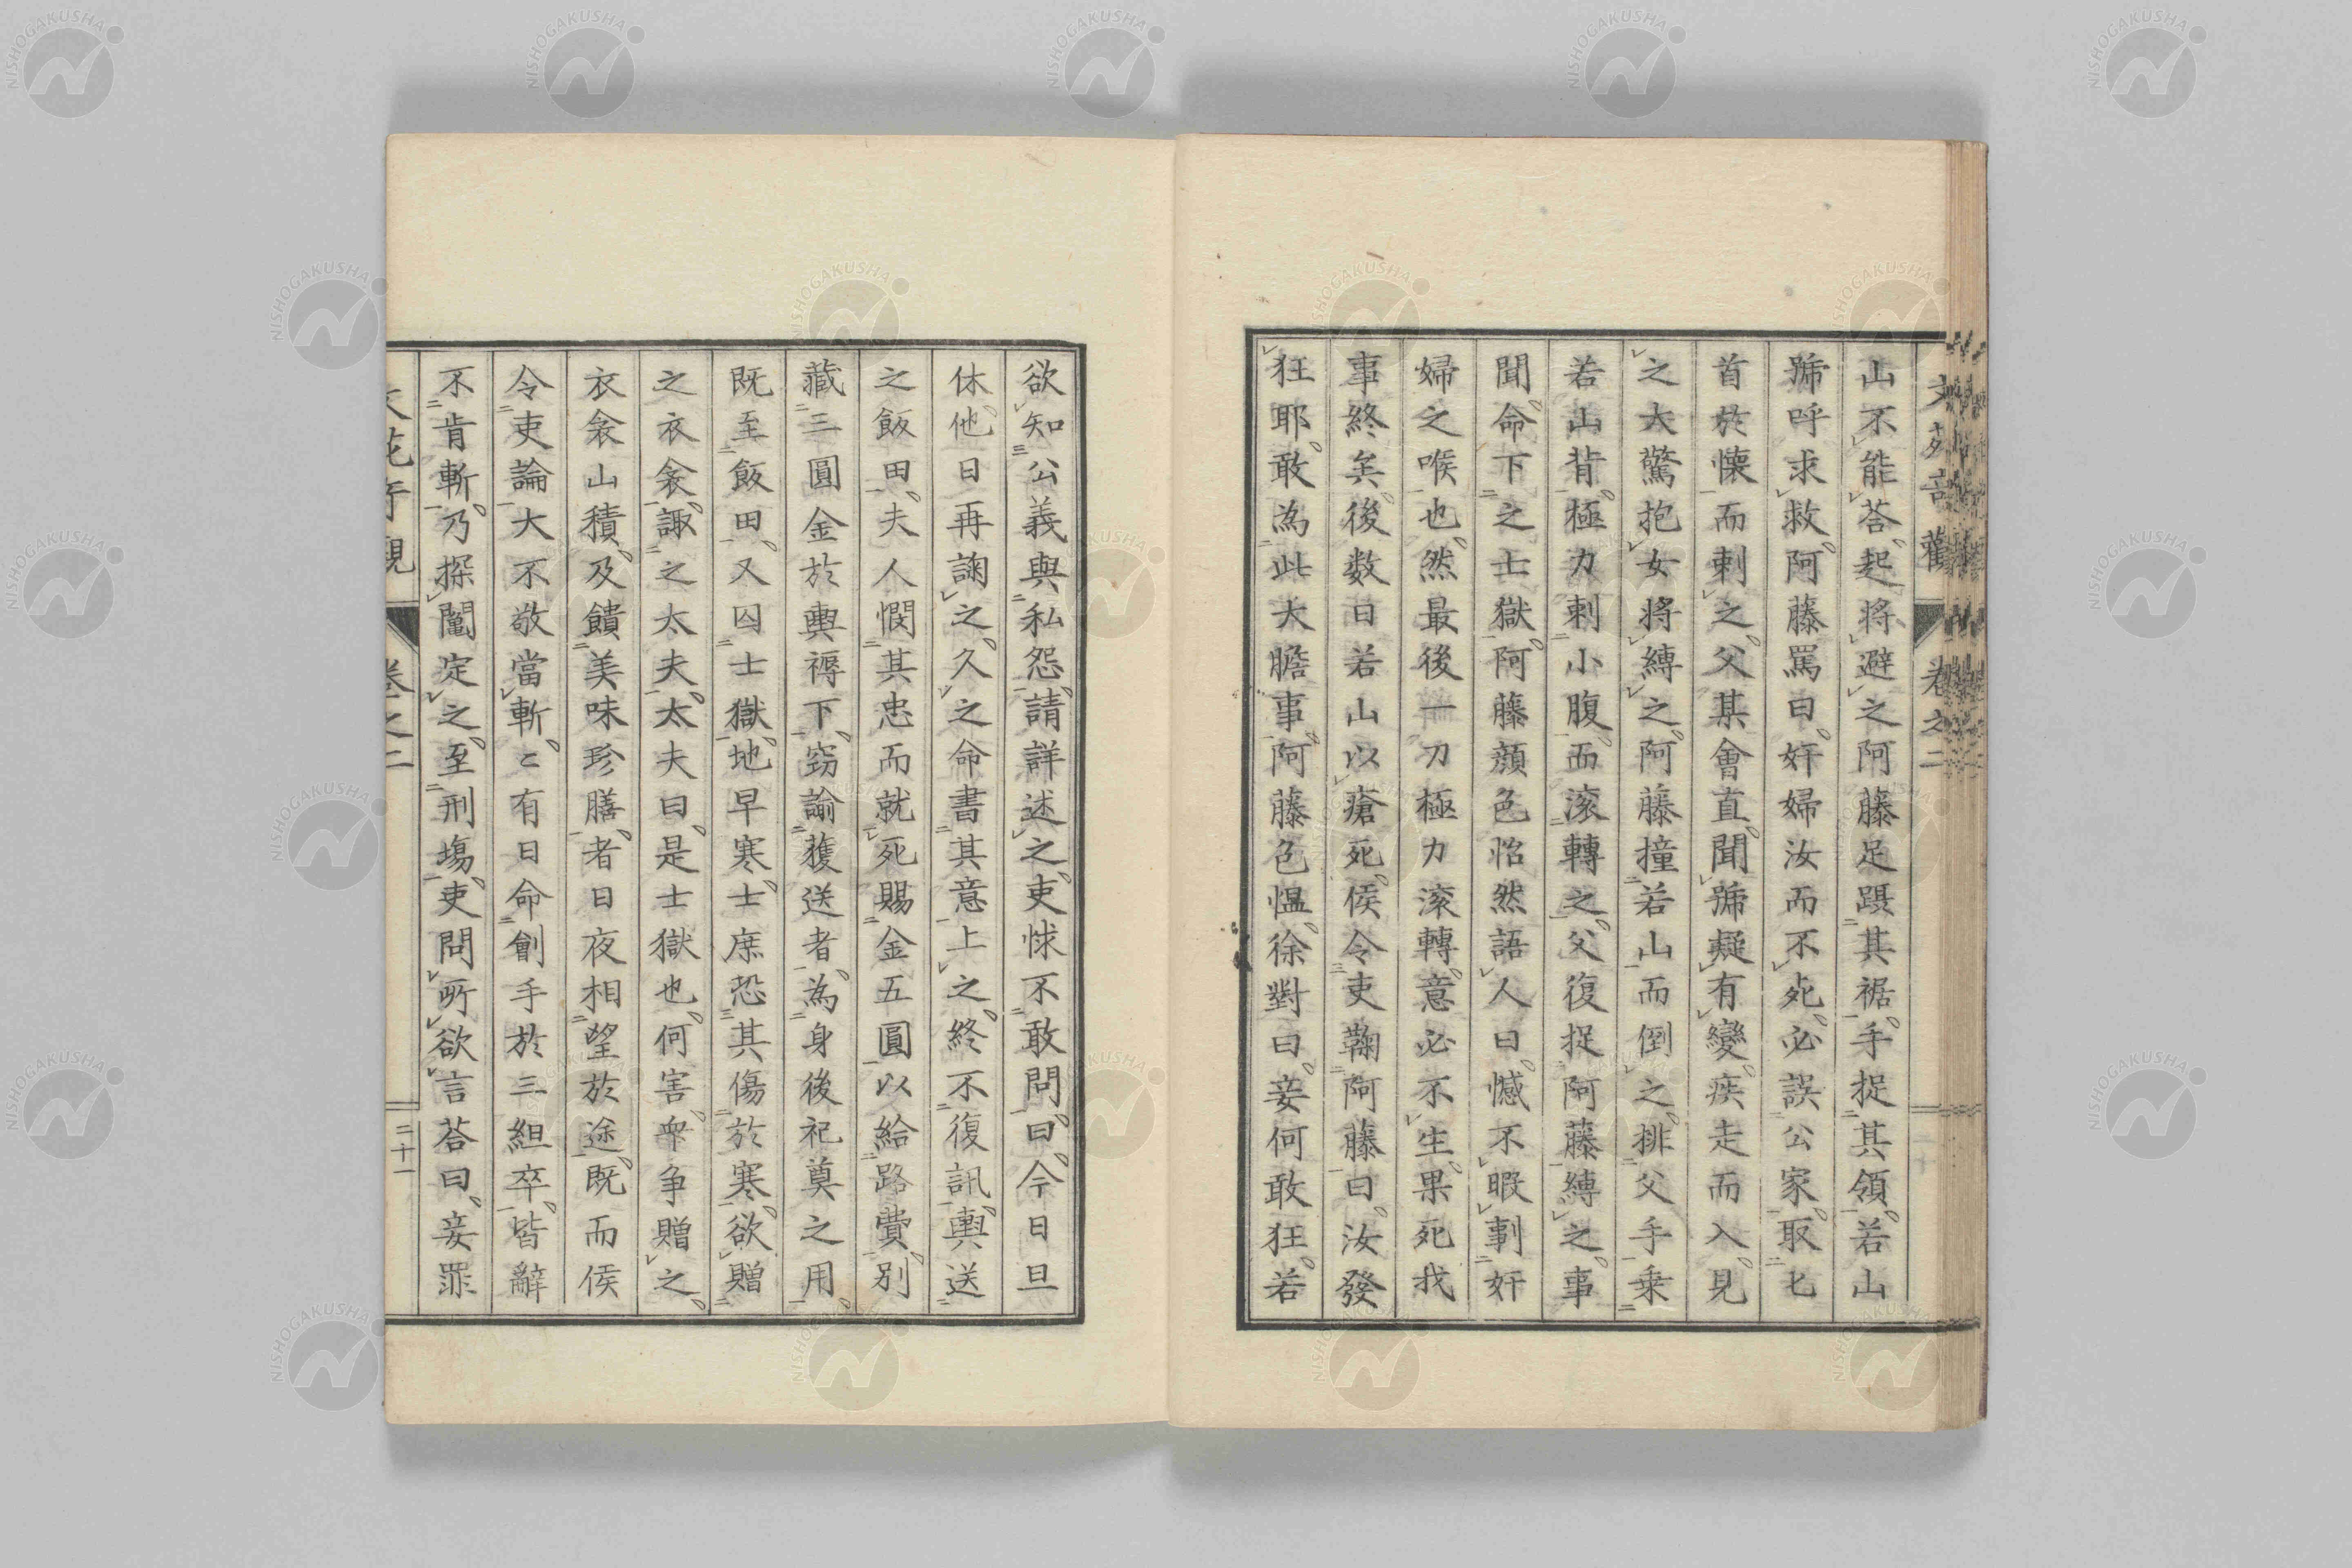 山不能荅起將避之阿藤足躡其裾手捉其領若山
號呼求救阿藤罵曰奸婦汝而不死必誤公家取匕
首於懷而刺之父某會直聞號疑有變疾走而入見
之大驚抱女將縛之阿藤撞若山而倒之排父手乗
若山背極力刺小腹而滚轉之父復捉阿藤縛之事
聞命下之士獄阿藤顔色怡然語人曰憾不暇剚奸
婦之喉也然最後一刀極力滚轉意必不生果死我
事終矣後数日若山以瘡死侯令吏鞠阿藤曰汝發
狂耶敢為此大膽事阿藤色愠徐對曰妾何敢狂若
欲知公義與私怨請詳述之吏悚不敢問曰今日旦
休他日再謝之久之命書其意上之終不復訊輿送
之飯田夫人憫其忠而就死賜金五圓以給路費別
藏三圓金於輿褥下窈諭護送者為身後祀奠之用
既至飯田又囚士獄地早寒士庶恐其傷於寒欲贈
之衣衾諏之太夫太夫曰是士獄也何害衆争贈之
衣衾山積及饋美味珍膳者日夜相望於途既而侯
令吏論大不敬當斬々有日命劊手於三組卒皆辭
不肯斬乃探鬮定之至刑塲吏問所欲言荅曰妾罪
卷之二
二十一